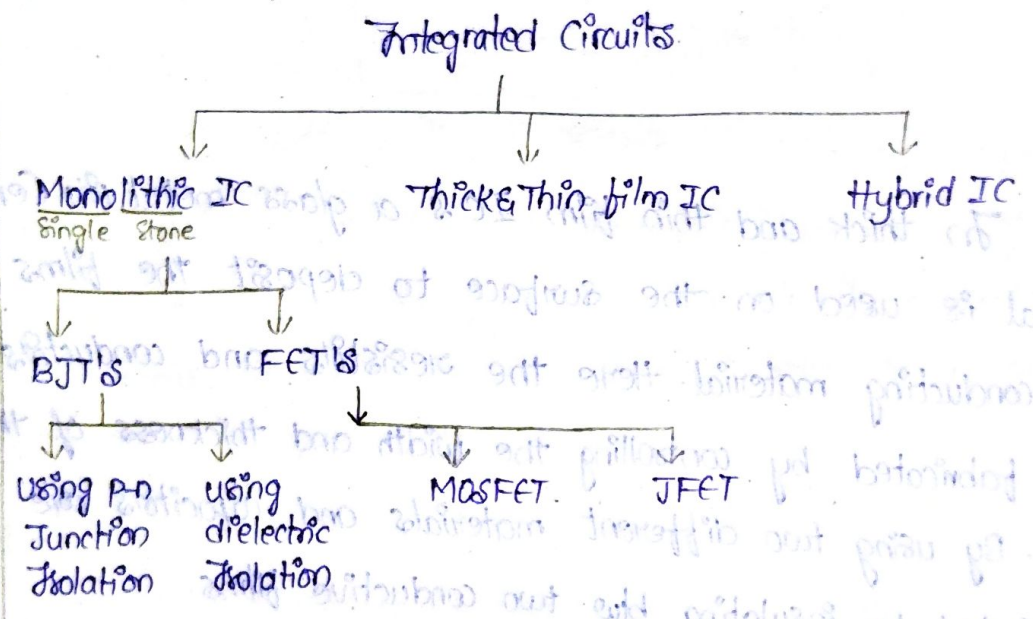 Integrated Circuits
Monolithic IC
Thick & Thin film IC
Hybrid IC
Single Stone
BJT's
FET's
using p-n
Junction
Isolation
using
dielectric
Isolation
MOSFET.
JFET